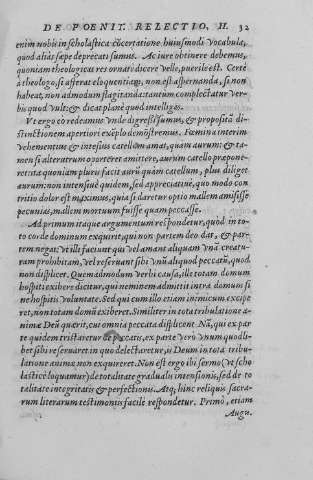 DE POENIT. RELECTIO. II. 32
enim nobis in scholastica cōcertatione huiusmodi vocabula,
quod aliàs sæpe deprecati sumus. Ac iure obtinere debemus,
quoniam theologicas res ornari dicere velle, puerile est. Certè
à theologo, si afferat eloquentiam, non est aspernanda, si non
habeat, non admodum flagitanda: tantum complectatur ver-
bis quod vult: & dicat planè quod intelligas.
Vt ergo eò redeamus vnde digressi sumus, & proposita di-
stinctionem apertiori exēplo demōstremus. Fœmina interim
vehementius & intēsius catellom amat, quam aurum: & ta-
men si alterutrum oporteret amittere, aurum catello præpone-
ret: ita quoniam pluris facit aurū quàm catellum, plus diliget
aurum: non intensiuè quidem, sed appreciatiuè, quo modo con
tritio dolor est maximus, quia si daretur optio mallem amisisse
pecunias, mallem mortuum fuisse quam peccasse.
Ad primum itaque argumentum respondetur, quod in to-
to corde dominum exquirit, qui non partem deo dat, & par-
tem negat: vt ille faciunt qui vel amant aliquam vnā creatu-
ram prohibitam, vel reseruant sibi vnū aliquod peccatū, quod
non displicet. Quemadmodum verbi causa, ille totam domum
hospiti exibere dicitur, qui neminem admittit intrà domum si
ne hospitis voluntate. Sed qui cum illo etiam inimicum excipe
ret, non totam domū exiberet. Similiter in tota tribulatione a-
nimæ Deū quærit, cui omnia peccata displicent. Nā, qui ex par
te quidem tristaretur de peccatis, ex parte verò vnum quodli-
bet sibi reseruaret in quo delectaretur, iis Deum in tota tribu-
latione animæ non exquireret. Non est ergo ibi sermo (vt scho
lasticè loquamur) de totalitate gradualis intensionis, sed de to
talitate integritatis & perfectionis. Atq; hinc reliquis sacra-
rum literarum testimoniis facilè respondetur. Primò, etiam
Augu.